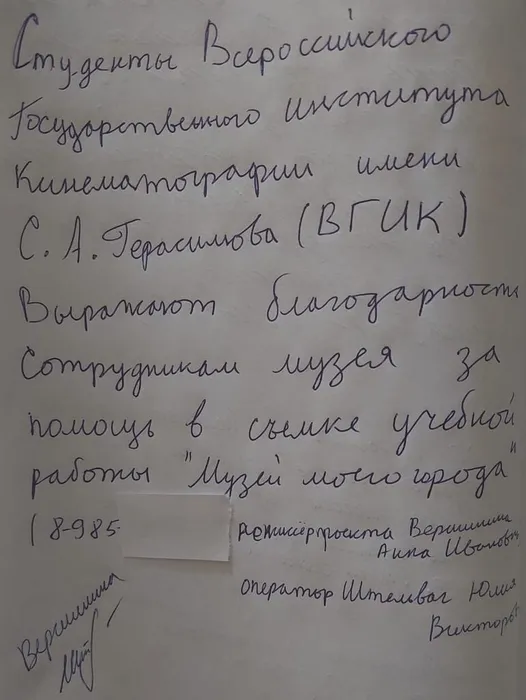 Студенты Всероссийского
Государственного института
Кинематографии имени
С. А. Герасимова (ВГИК)
Выражают благодарность
Сотрудникам музея за
помощь в съемке учебной
работы "Музей моего города"
(8-985- режиссёр проекта Вершинина
Анна Ивановн
оператор Штельваг Юлия
Викторов
Вершинина